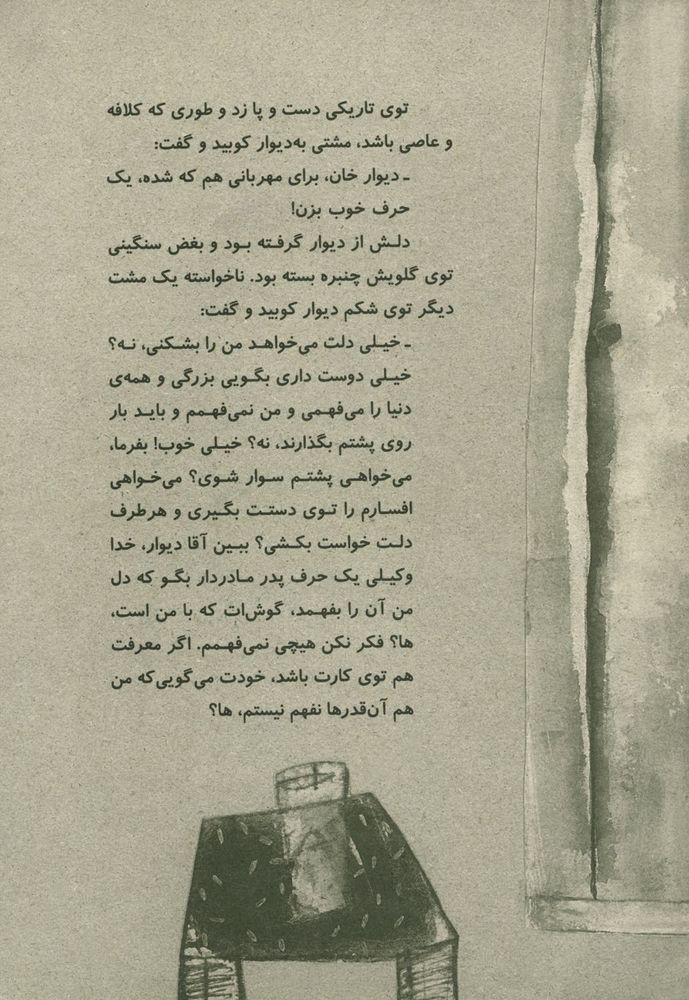 توی تاریکی دست و پا زد و طوری که کلافه
و عاصی باشد، مشتی به‌دیوار کوبید و گفت:
ـ دیوار خان، برای مهربانی هم که شده، یک
حرف خوب بزن!
دلش از دیوار گرفته بود و بغض سنگینی
توی گلویش چنبره بسته بود. ناخواسته یک مشت
دیگر توی شکم دیوار کوبید و گفت:
ـ خیلی دلت می‌خواهد من را بشکنی، نه؟
خیلی دوست داری بگویی بزرگی و همه‌ی
دنیا را می‌فهمی و من نمی‌فهمم و باید بار
روی پشتم بگذارند، نه؟ خیلی خوب! بفرما،
می‌خواهی پشتم سوار شوی؟ می‌خواهی
افسارم را توی دستت بگیری و هرطرف
دلت خواست بکشی؟ ببین آقا دیوار، خدا
وکیلی یک حرف پدر مادردار بگو که دل
من آن را بفهمد، گوش‌ات که با من است،
ها؟ فکر نکن هیچی نمی‌فهمم. اگر معرفت
هم توی کارت باشد، خودت می‌گویی‌که من
هم آن‌قدرها نفهم نیستم، ها؟